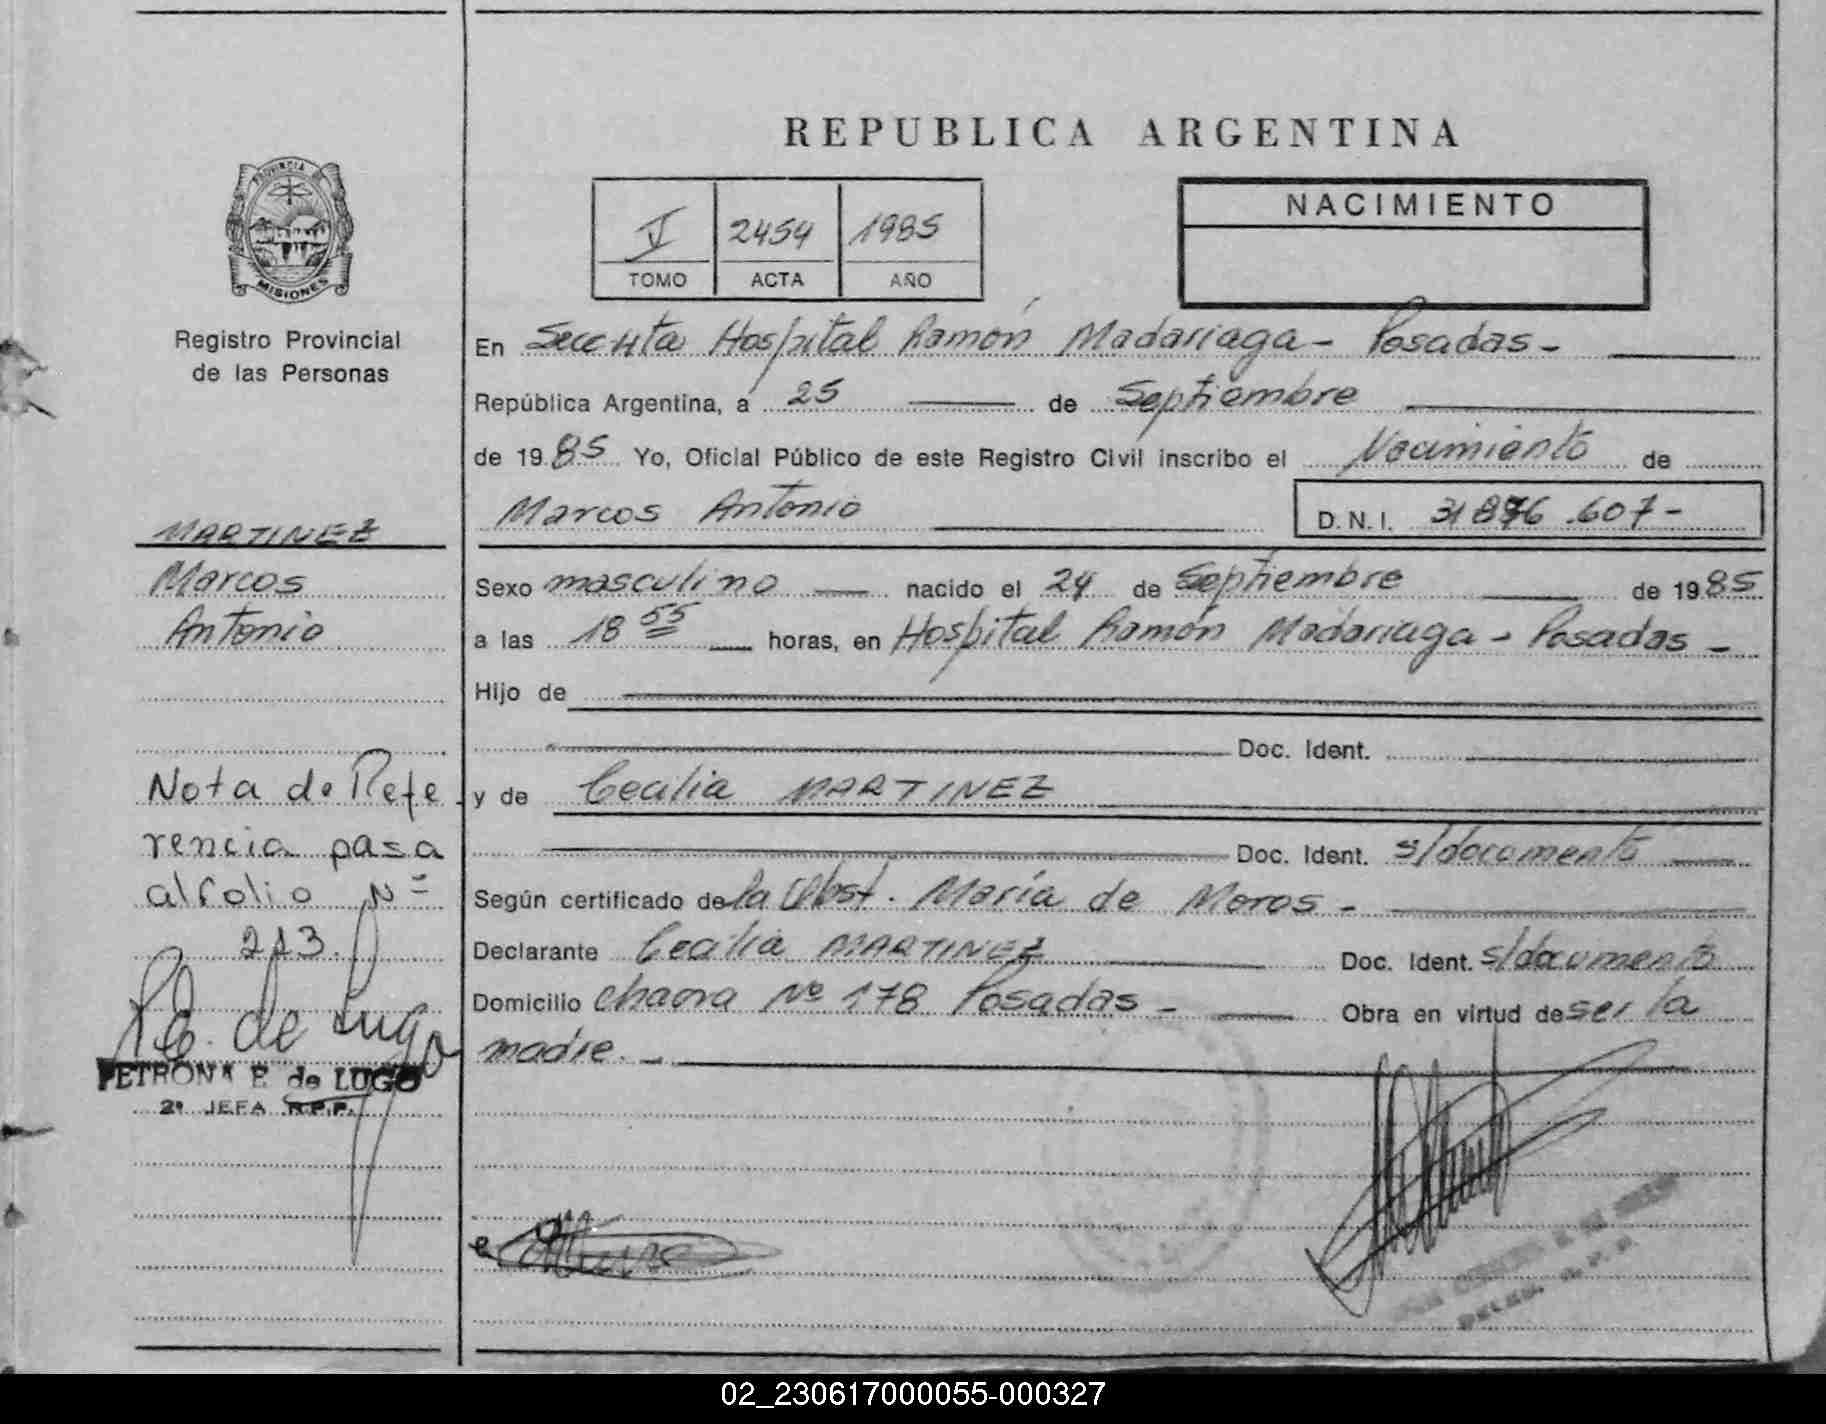 REPUBLICA ARGENTINA
PROVINCIA DE
MISIONES
Registro Provincial
de las Personas
V 2454 1985
TOMO ACTA AÑO
NACIMIENTO
En Hospital Ramón Madariaga - Posadas -
República Argentina, a 25 de Septiembre
de 1985 Yo, Oficial Público de este Registro Civil inscribo el Nacimiento de
Marcos Antonio
D.N.I. 607-
MARTINEZ
Marcos
Antonio
Sexo masculino nacido el 24 de Septiembre de 1985
a las 18 55 horas, en Hospital Ramón Madariaga - Posadas -
Hijo de
Doc. Ident.
y de Cecilia MARTINEZ
Doc. Ident. s/documento
Según certificado de la Obst. María de Moros -
Declarante Cecilia MARTINEZ Doc. Ident. s/documento
Domicilio chacra Nº 178 Posadas - Obra en virtud de ser la
madre. -
Nota de Refe
rencia pasa
al folio Nº
213.
P.E. de Lugo
PETRONA E. de LUGO
2ª JEFA R.P.P.
02_230617000055-000327